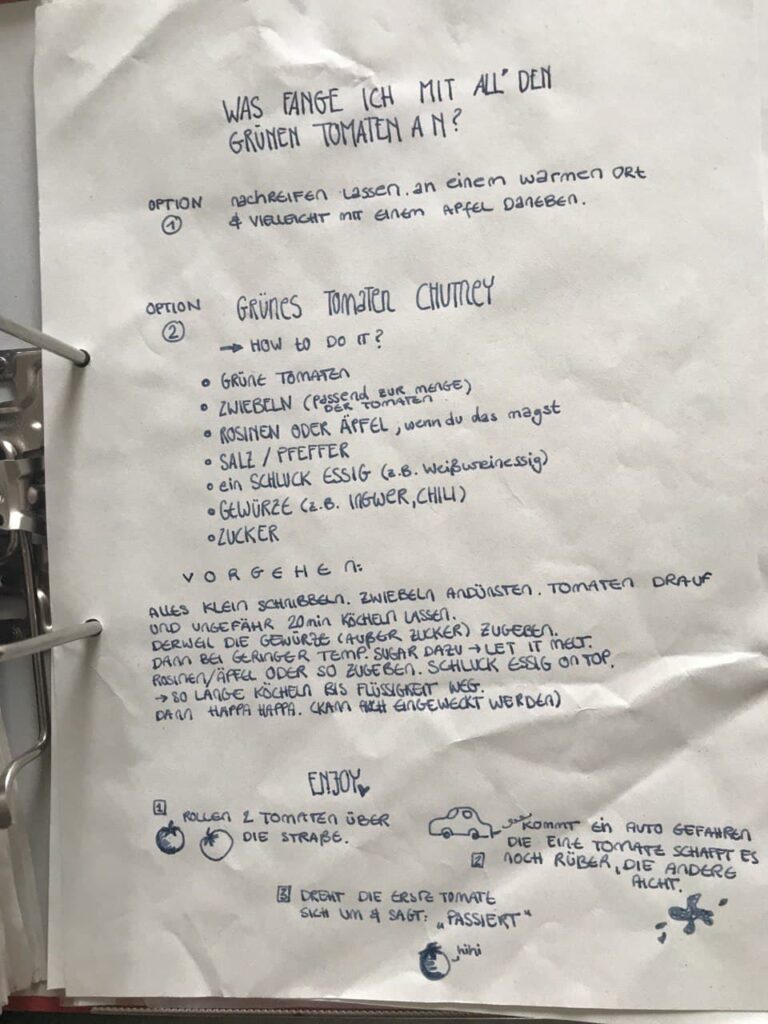 WAS FANGE ICH MIT ALL' DEN
GRÜNEN TOMATEN AN?
OPTION
①
nachREIFEN LASSEN. an einem warmen ORt
& VIELLEICHT MIT EINEM APFEL DANEBEN.
OPTION
②
GRÜNES TOMATEN CHUTNEY
→ HOW to DO IT?
• GRÜNE TOMATEN
• ZWIEBELN (Passend ZUR MENGE)
DER TOMATEN
• ROSINEN ODER ÄPFEL, wenn du das magst
• SALZ / PFEFFER
• ein SCHLUCK ESSIG (z.B. Weißweinessig)
• GEWÜRZE (z.B. INGWER, CHILI)
• ZUCKER
VORGEHEN:
ALLES KLEIN SCHNIBBELN. ZWIEBELN ANDÜNSTEN. TOMATEN DRAUF
UND UNGEFÄHR 20min KÖCHELN LASSEN.
DERWEIL DIE GEWÜRZE (AUßER ZUCKER) ZUGEBEN.
DANN BEI GERINGER TEMP. SUGAR DAZU → LET IT MELT.
ROSINEN/ÄPFEL ODER SO ZUGEBEN. SCHLUCK ESSIG ON TOP.
→ SO LANGE KÖCHELN BIS FLÜSSIGKEIT WEG.
DANN HAPPA HAPPA. (KANN AUCH EINGEWECKT WERDEN)
ENJOY♥
1 ROLLEN 2 TOMATEN ÜBER
DIE STRAßE.
KOMMT EIN AUTO GEFAHREN
DIE EINE TOMATE SCHAFFT ES
2 NOCH RÜBER, DIE ANDERE
NICHT.
3 DREHT DIE ERSTE TOMATE
SICH UM & SAGT: „PASSIERT"
hihi